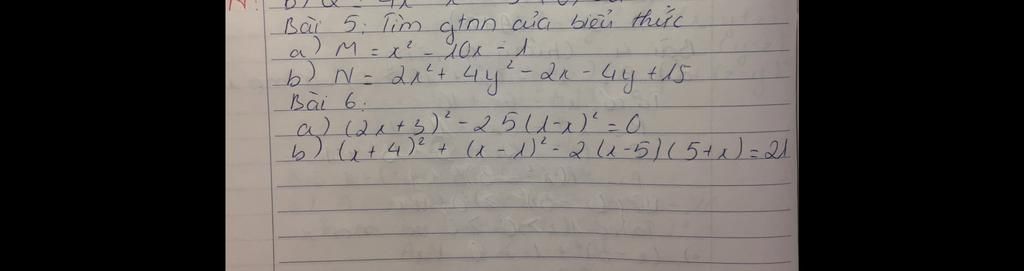 Bài 5: Tìm gtnn của biểu thức
a) M = x² - 10x - 1
b) N = 2x² + 4y² - 2x - 4y + 15
Bài 6:
a) (2x+3)² - 25(1-x)² = 0
b) (x+4)² + (x-1)² - 2(x-5)(5+x) = 21